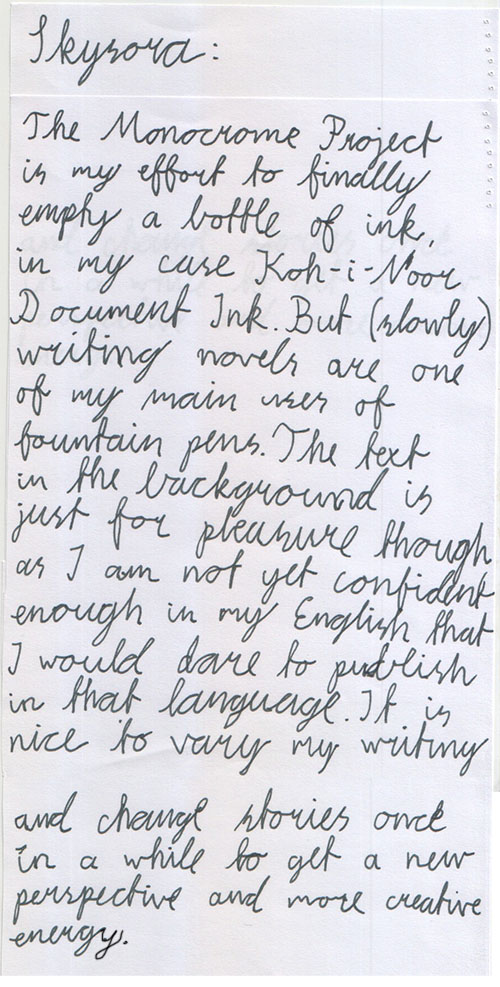 Skysora:
The Monocrome Project
is my effort to finally
empty a bottle of ink,
in my case Koh-i-Noor
Document Ink. But (slowly)
writing novels are one
of my main uses of
fountain pens. The text
in the background is
just for pleasure though
as I am not yet confident
enough in my English that
I would dare to publish
in that language. It is
nice to vary my writing
and change stories once
in a while to get a new
perspective and more creative
energy.